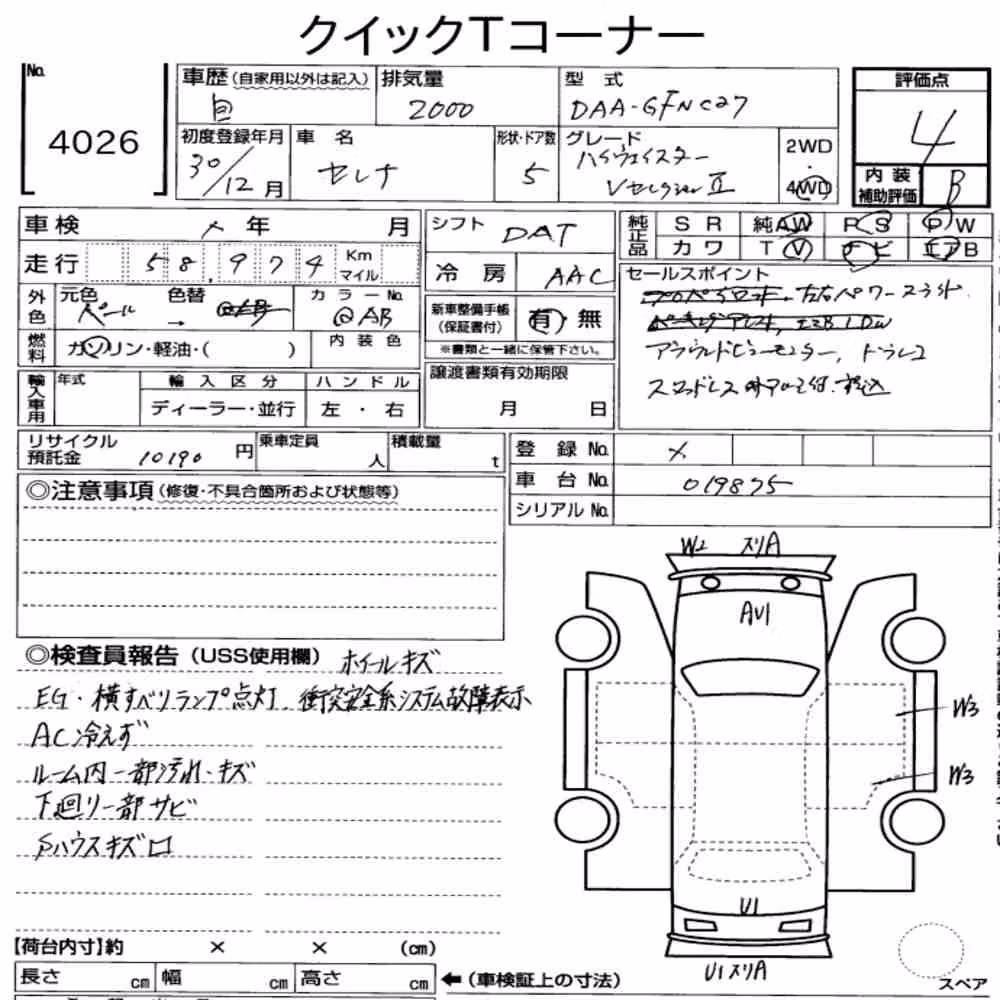 クイックTコーナー
No.
4026
車歴(自家用以外は記入)
自
排気量
2000
型 式
DAA-GFNC27
評価点
4
初度登録年月
30/12月
車 名
セレナ
形状・ドア数
5
グレード
ハイウェイスター
VセレクションⅡ
2WD
・
4WD
内 装
補助評価
B
車検 × 年 月
シフト
DAT
純正品
SR
純AW
PS
PW
カワ
TV
ナビ
エアB
走行 58,974 Km
マイル
冷 房
AAC
外色
元色
パール
色替
→
カラーNo.
@AB
燃料
ガソリン・軽油・( )
内 装 色
新車整備手帳
(保証書付)
有・無
※書類と一緒に保管下さい。
セールスポイント
アラウンドビューモニター, ドラレコ
輸入車用
年式
輸 入 区 分
ハ ン ド ル
ディーラー・並行
左 ・ 右
譲渡書類有効期限
月 日
リサイクル
預託金
10190 円
乗車定員
人
積載量
t
登 録 No.
×
車 台 No.
019875
シリアル No.
◎注意事項(修復・不具合箇所および状態等)
◎検査員報告(USS使用欄) ホイールキズ
EG・横すべりランプ点灯、衝突安全系システム故障表示
AC冷えず
ルーム内一部汚れ・キズ
下廻り一部サビ
Sハウスキズ口
W2 スリA
AU1
W3
W3
U1
U1スリA
スペア
【荷台内寸】約 × × (cm)
長さ cm 幅 cm 高さ cm ←(車検証上の寸法)